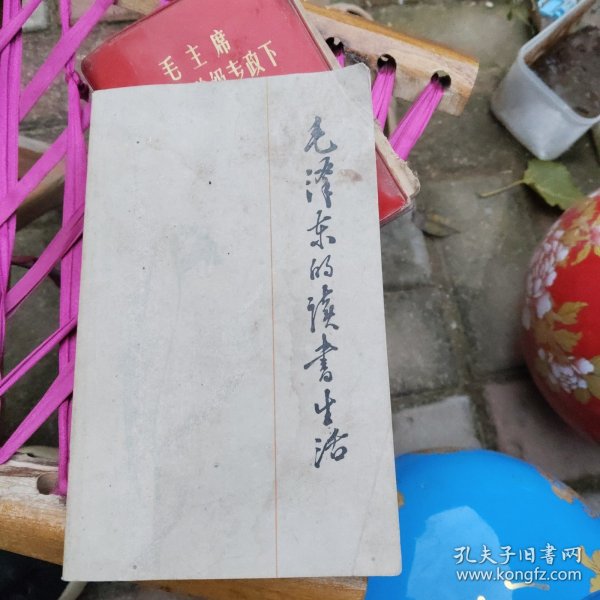 毛主席
专政下
毛泽东的读书生活
孔夫子旧书网
www.kongfz.com